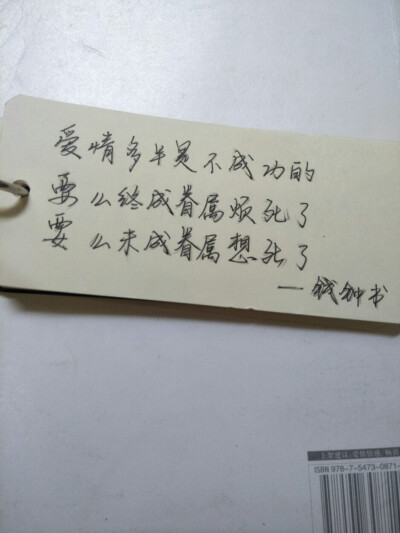 爱情多半是不成功的
要么终成眷属烦死了
要么未成眷属想死了
—钱钟书
上架建议:
ISBN 978-7-5473-0871-